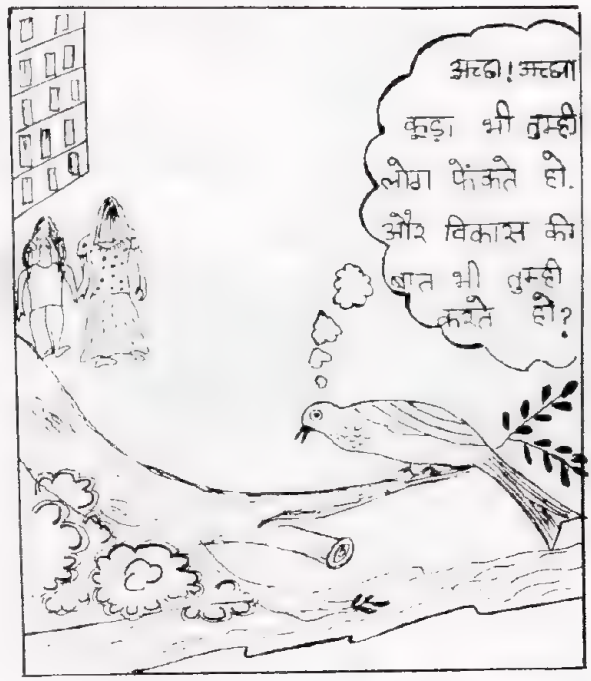 अच्छा! अच्छा
कूड़ा भी तुम्ही
लोग फेंकते हो.
और विकास की
बात भी तुम्ही
करते हो?